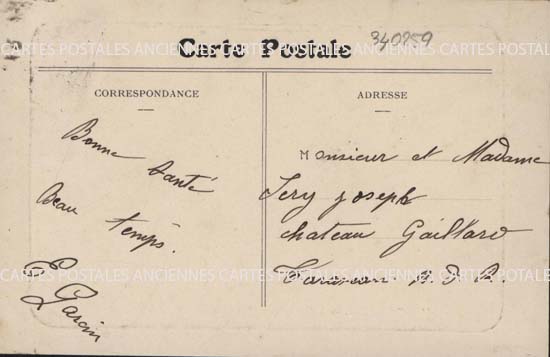 340259
CARTES POSTALES ANCIENNES CARTES POSTALES ANCIENNES CARTES POSTALES
Carte Postale
CORRESPONDANCE
Bonne santé
Beau temps.
E Garcin
ADRESSE
Monsieur et Madame
Jery joseph
chateau Gaillard
Tarascon. B. D. R.
CARTES POSTALES ANCIENNES CARTES POSTALES ANCIENNES CARTES POSTALES